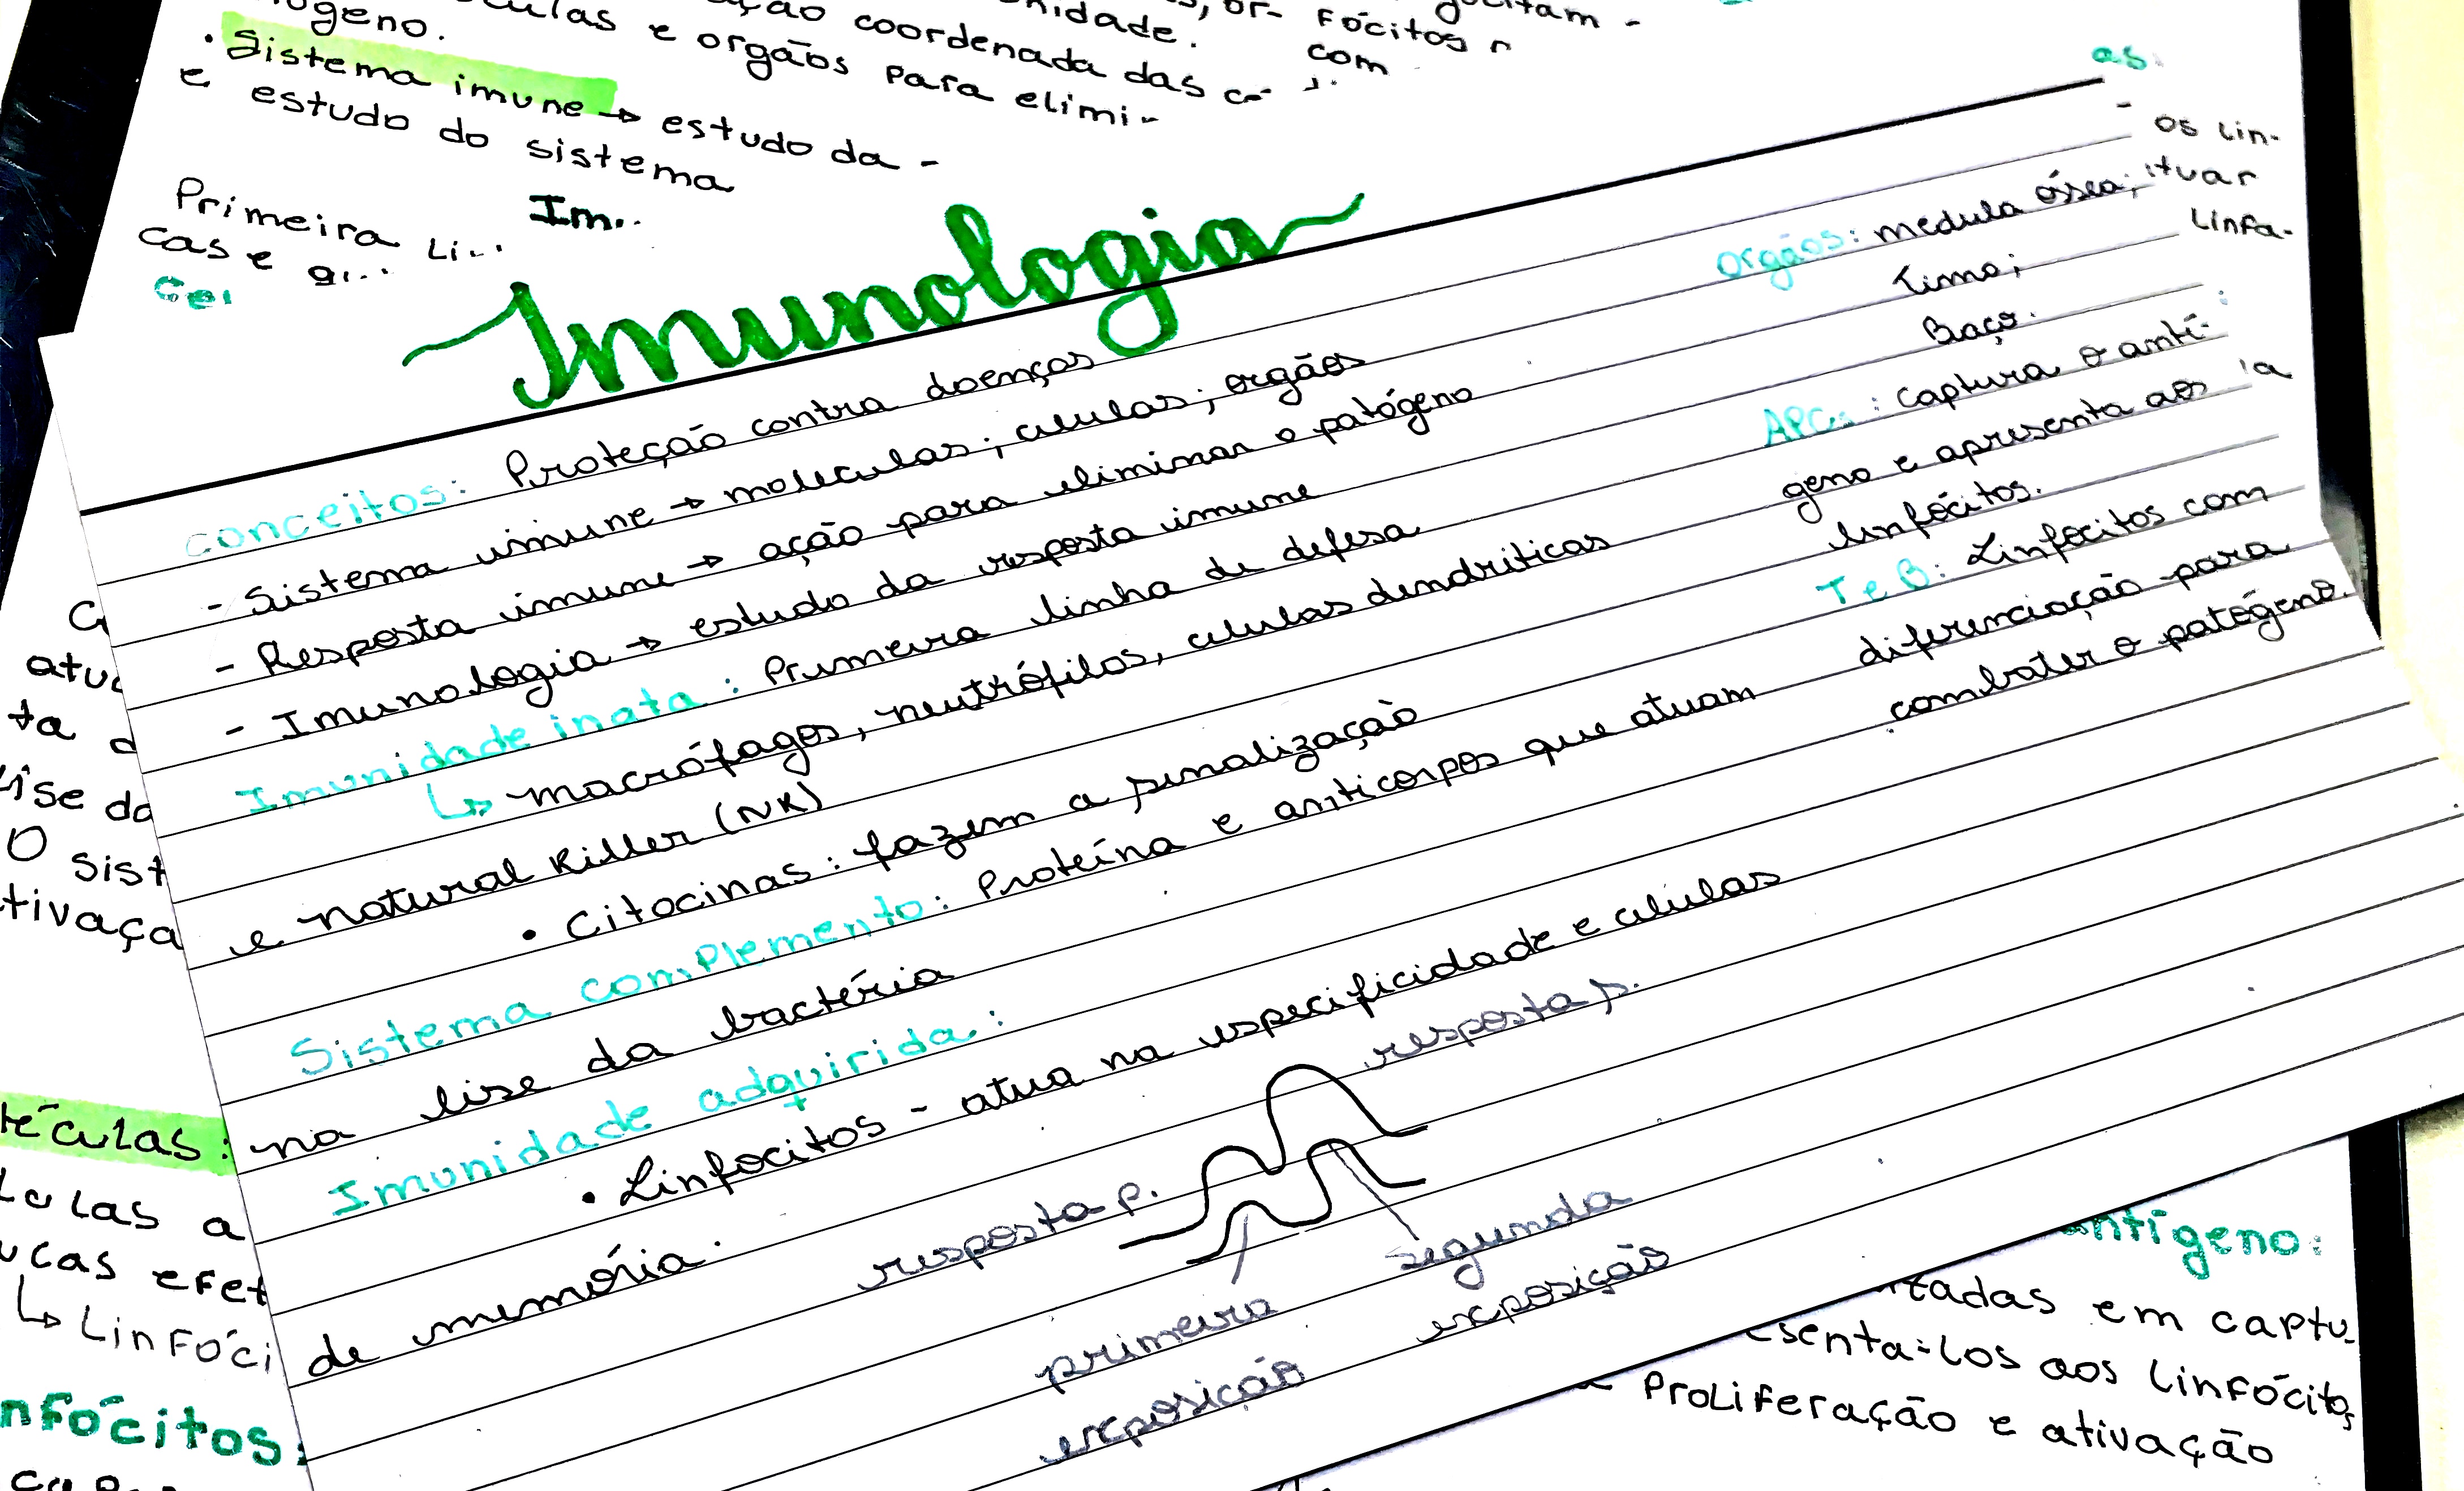 ógeno.
culas e orgãos para elimi
ação coordenada das
nidade.
com
Fócitos
· Sistema imune → estudo da
e estudo do sistema
Primeira Li
cas e
Im
Imunologia
conceitos: Proteção contra doenças
- Sistema imune → moleculas; celulas; orgãos
- Resposta imune → ação para eliminar o patógeno
- Imunologia → estudo da resposta imune
Imunidade inata: Primeira linha de defesa
↳ macrófagos, neutrófilos, celulas dendriticas
e natural Killer (NK)
• Citocinas: fazem a sinalização
Sistema complemento: Proteína e anticorpos que atuam
na lise da bactéria
Imunidade adquirida:
• Linfocitos - atua na especificidade e celulas
de memória.
resposta p.
resposta p.
primeira
exposição
segunda
exposição
Orgãos: medula óssea;
Timo;
Baço.
APCs: captura o antí-
geno e apresenta aos
linfócitos.
T e B: Linfocitos com
diferenciação para
combater o patógeno.
as
os Lin-
tuar
Linfa-
atu
ta d
Lise da
O Sist
tivaça
éculas:
Lulas a
ucas efet
↳ Linfóci
nfócitos:
antígeno:
tadas em captu-
senta-los aos Linfócitos
Proliferação e ativação